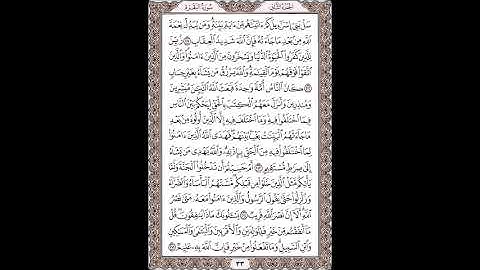 سُورَةُ البَقَرَةِ الجُزْءُ الثَّانِي
سَلْ بَنِىٓ إِسْرَٰٓءِيلَ كَمْ ءَاتَيْنَٰهُم مِّنْ ءَايَةٍۭ بَيِّنَةٍۗ وَمَن يُبَدِّلْ نِعْمَةَ
ٱللَّهِ مِنۢ بَعْدِ مَا جَآءَتْهُ فَإِنَّ ٱللَّهَ شَدِيدُ ٱلْعِقَابِ ٢١١ زُيِّنَ
لِلَّذِينَ كَفَرُوا۟ ٱلْحَيَوٰةُ ٱلدُّنْيَا وَيَسْخَرُونَ مِنَ ٱلَّذِينَ ءَامَنُوا۟ۘ وَٱلَّذِينَ
ٱتَّقَوْا۟ فَوْقَهُمْ يَوْمَ ٱلْقِيَٰمَةِۗ وَٱللَّهُ يَرْزُقُ مَن يَشَآءُ بِغَيْرِ حِسَابٍ
٢١٢ كَانَ ٱلنَّاسُ أُمَّةً وَٰحِدَةً فَبَعَثَ ٱللَّهُ ٱلنَّبِيِّۦنَ مُبَشِّرِينَ
وَمُنذِرِينَ وَأَنزَلَ مَعَهُمُ ٱلْكِتَٰبَ بِٱلْحَقِّ لِيَحْكُمَ بَيْنَ ٱلنَّاسِ
فِيمَا ٱخْتَلَفُوا۟ فِيهِۚ وَمَا ٱخْتَلَفَ فِيهِ إِلَّا ٱلَّذِينَ أُوتُوهُ مِنۢ بَعْدِ
مَا جَآءَتْهُمُ ٱلْبَيِّنَٰتُ بَغْيًۢا بَيْنَهُمْۖ فَهَدَى ٱللَّهُ ٱلَّذِينَ ءَامَنُوا۟
لِمَا ٱخْتَلَفُوا۟ فِيهِ مِنَ ٱلْحَقِّ بِإِذْنِهِۦۗ وَٱللَّهُ يَهْدِى مَن يَشَآءُ
إِلَىٰ صِرَٰطٍ مُّسْتَقِيمٍ ٢١٣ أَمْ حَسِبْتُمْ أَن تَدْخُلُوا۟ ٱلْجَنَّةَ وَلَمَّا
يَأْتِكُم مَّثَلُ ٱلَّذِينَ خَلَوْا۟ مِن قَبْلِكُمۖ مَّسَّتْهُمُ ٱلْبَأْسَآءُ وَٱلضَّرَّآءُ
وَزُلْزِلُوا۟ حَتَّىٰ يَقُولَ ٱلرَّسُولُ وَٱلَّذِينَ ءَامَنُوا۟ مَعَهُۥ مَتَىٰ نَصْرُ
ٱللَّهِۗ أَلَآ إِنَّ نَصْرَ ٱللَّهِ قَرِيبٌ ٢١٤ يَسْـَٔلُونَكَ مَاذَا يُنفِقُونَۖ قُلْ
مَآ أَنفَقْتُم مِّنْ خَيْرٍ فَلِلْوَٰلِدَيْنِ وَٱلْأَقْرَبِينَ وَٱلْيَتَٰمَىٰ وَٱلْمَسَٰكِينِ
وَٱبْنِ ٱلسَّبِيلِۗ وَمَا تَفْعَلُوا۟ مِنْ خَيْرٍ فَإِنَّ ٱللَّهَ بِهِۦ عَلِيمٌ ٢١٥
٣٣